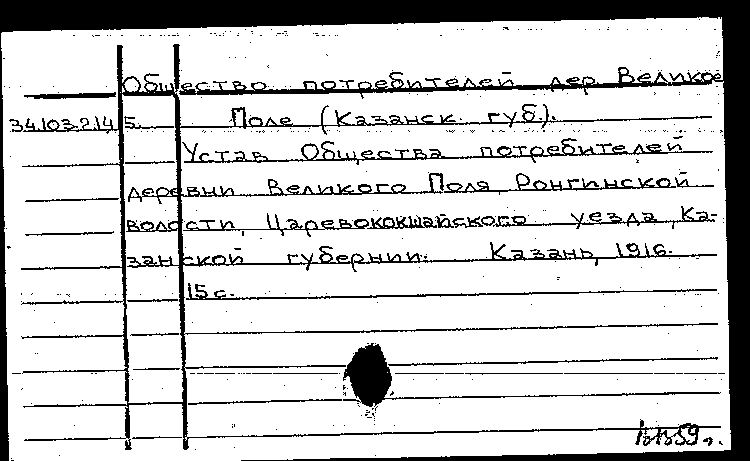 Общество потребителей дер Великое
34.103.2.14 5. Поле (Казанск. губ.).
Устав Общества потребителей
деревни Великого Поля Ронгинской
волости, Царевококшайского уезда, Ка-
занской губернии. Казань, 1916.
15 с.